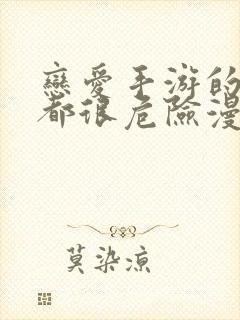 戀愛手游的
都很危險漫
莫染凉